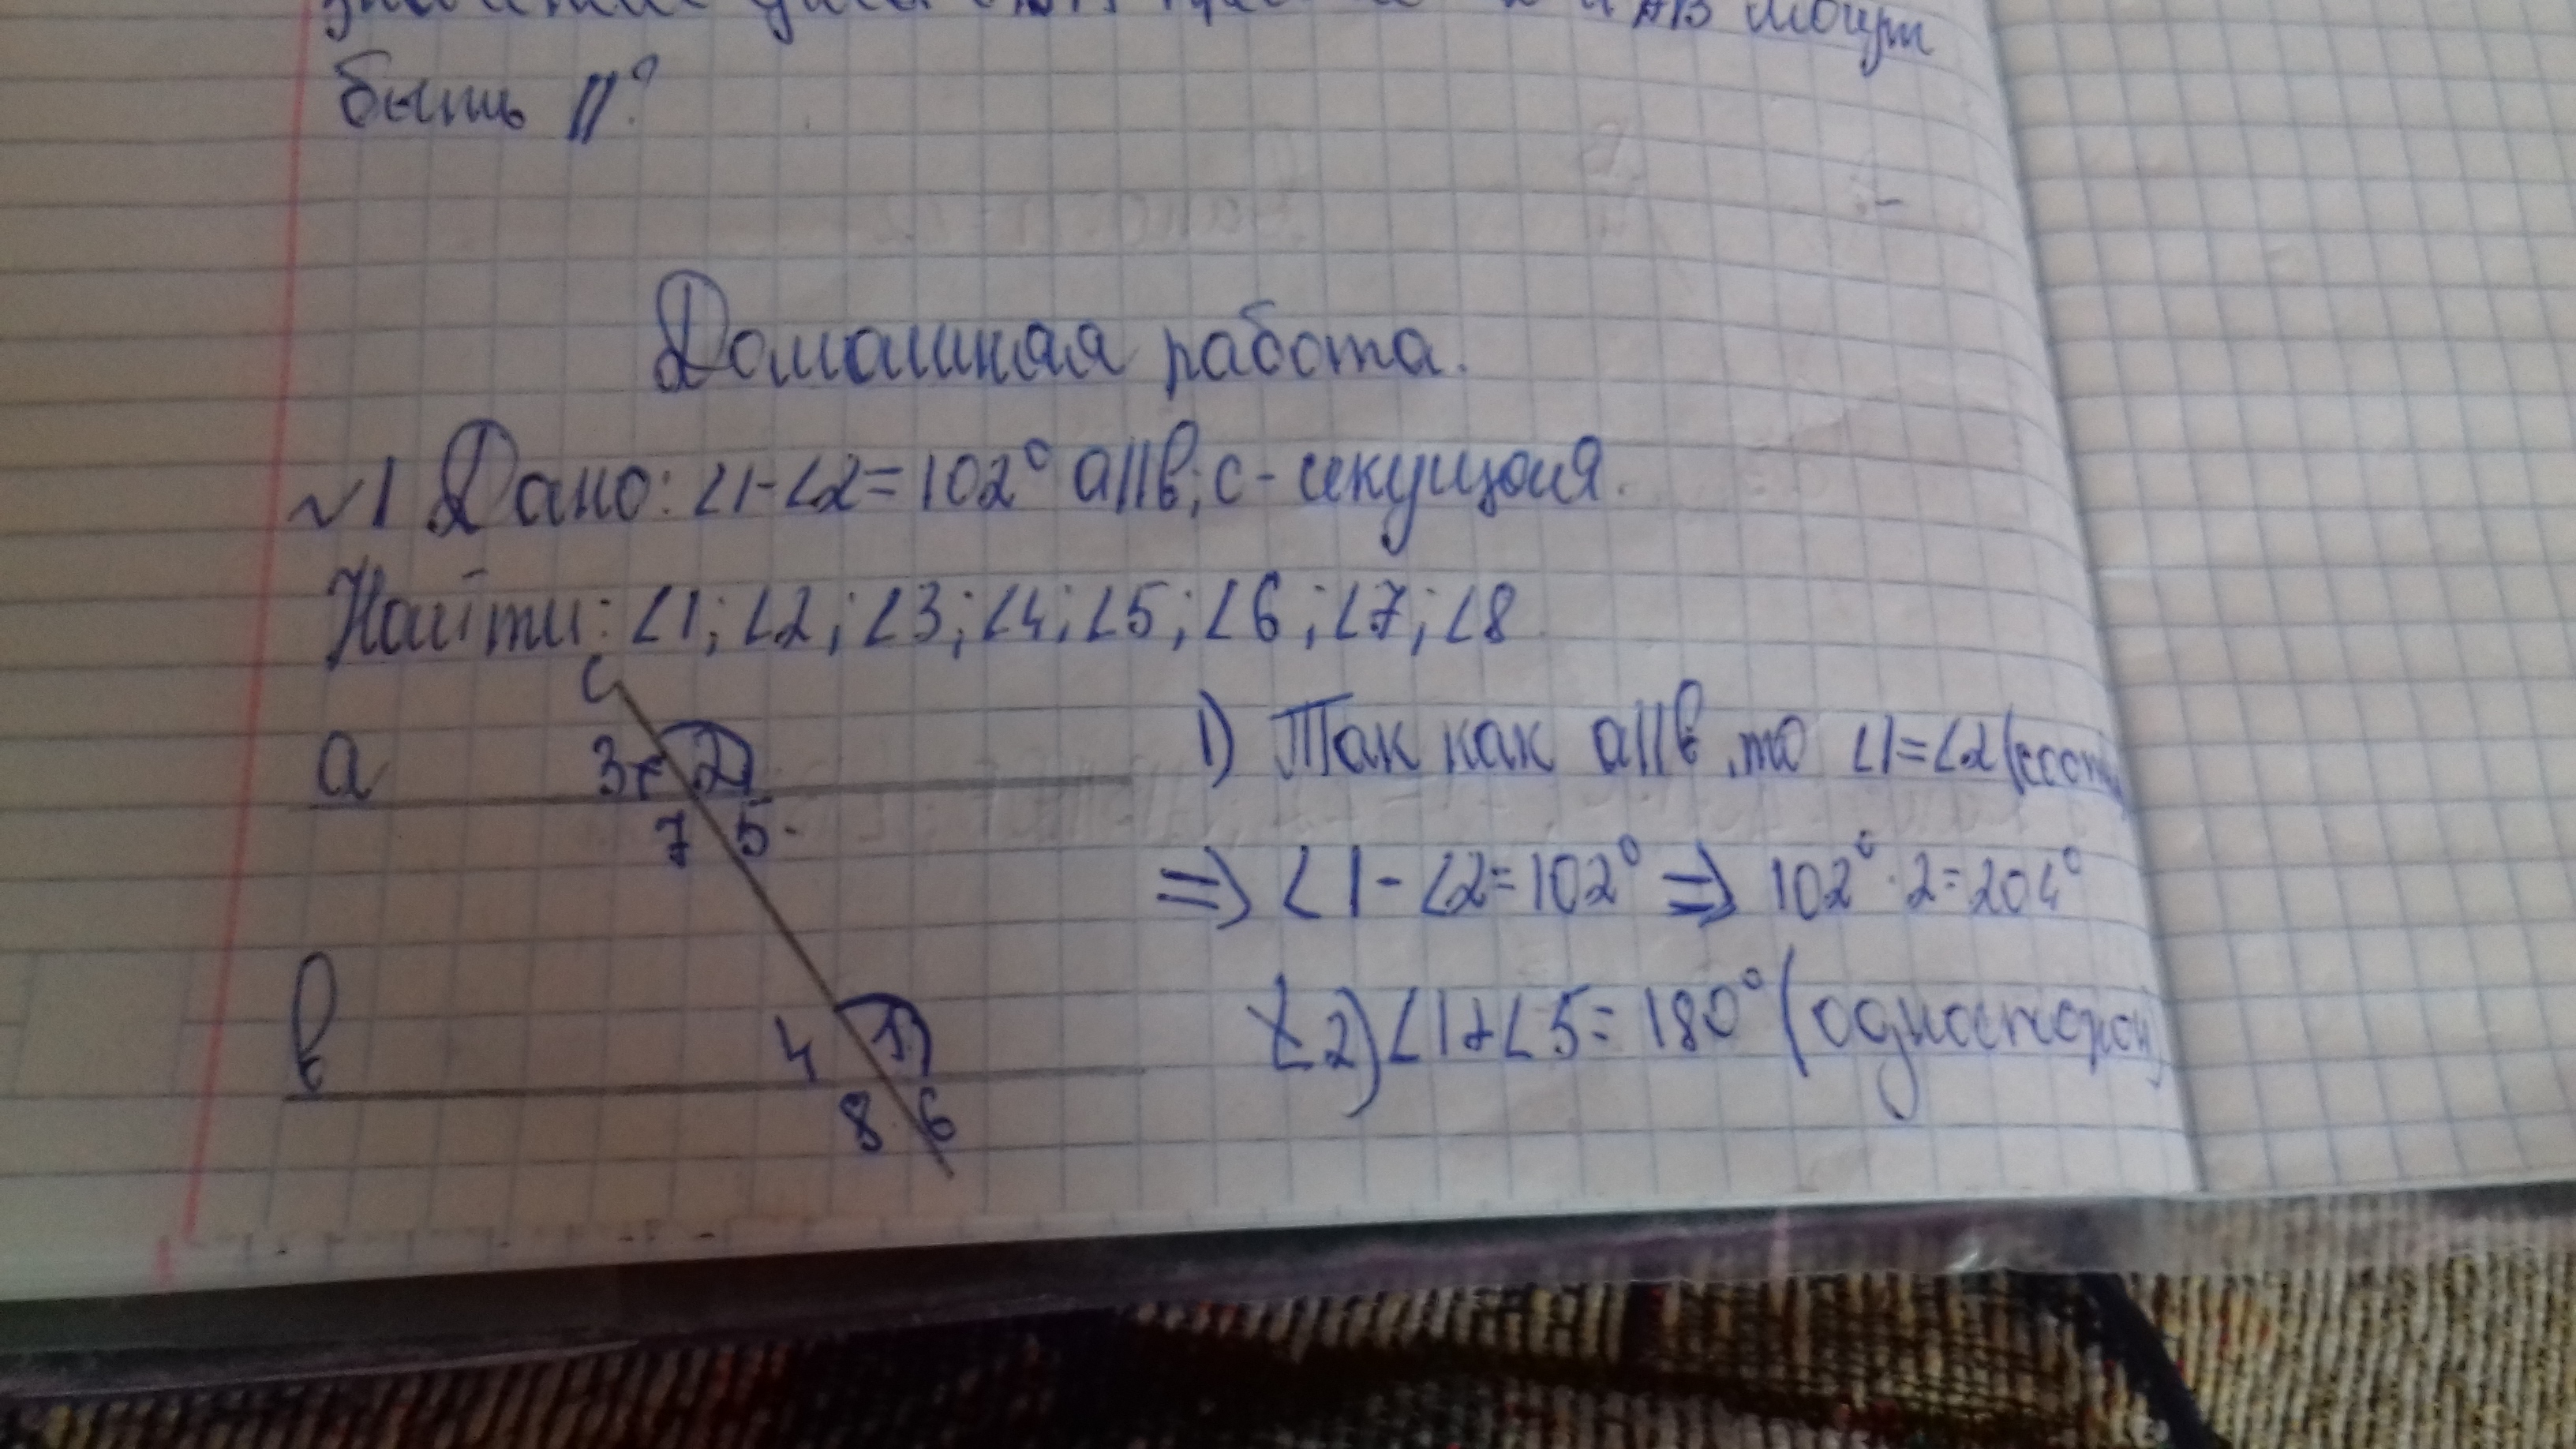 и АВ могут
быть ||?
Домашная работа.
№1 Дано: ∠1-∠2=102° a||b; c - секущая.
Найти: ∠1; ∠2; ∠3; ∠4; ∠5; ∠6; ∠7; ∠8
c
a 3 2
7 5
b 4 1
8 6
1) Так как a||b, то ∠1=∠2 (соотв
=> ∠1-∠2=102° => 102°·2=204°
2) ∠1+∠5=180° (односторон)